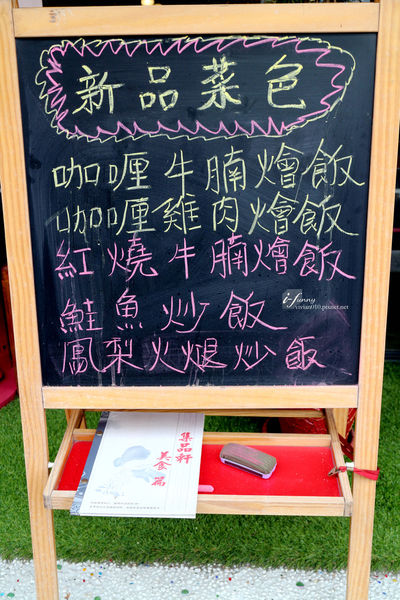 新品菜色
咖喱牛腩燴飯
咖喱雞肉燴飯
紅燒牛腩燴飯
鮭魚炒飯
鳳梨火腿炒飯
i-funny
vivian0110.pixnet.net
集品軒
美食篇